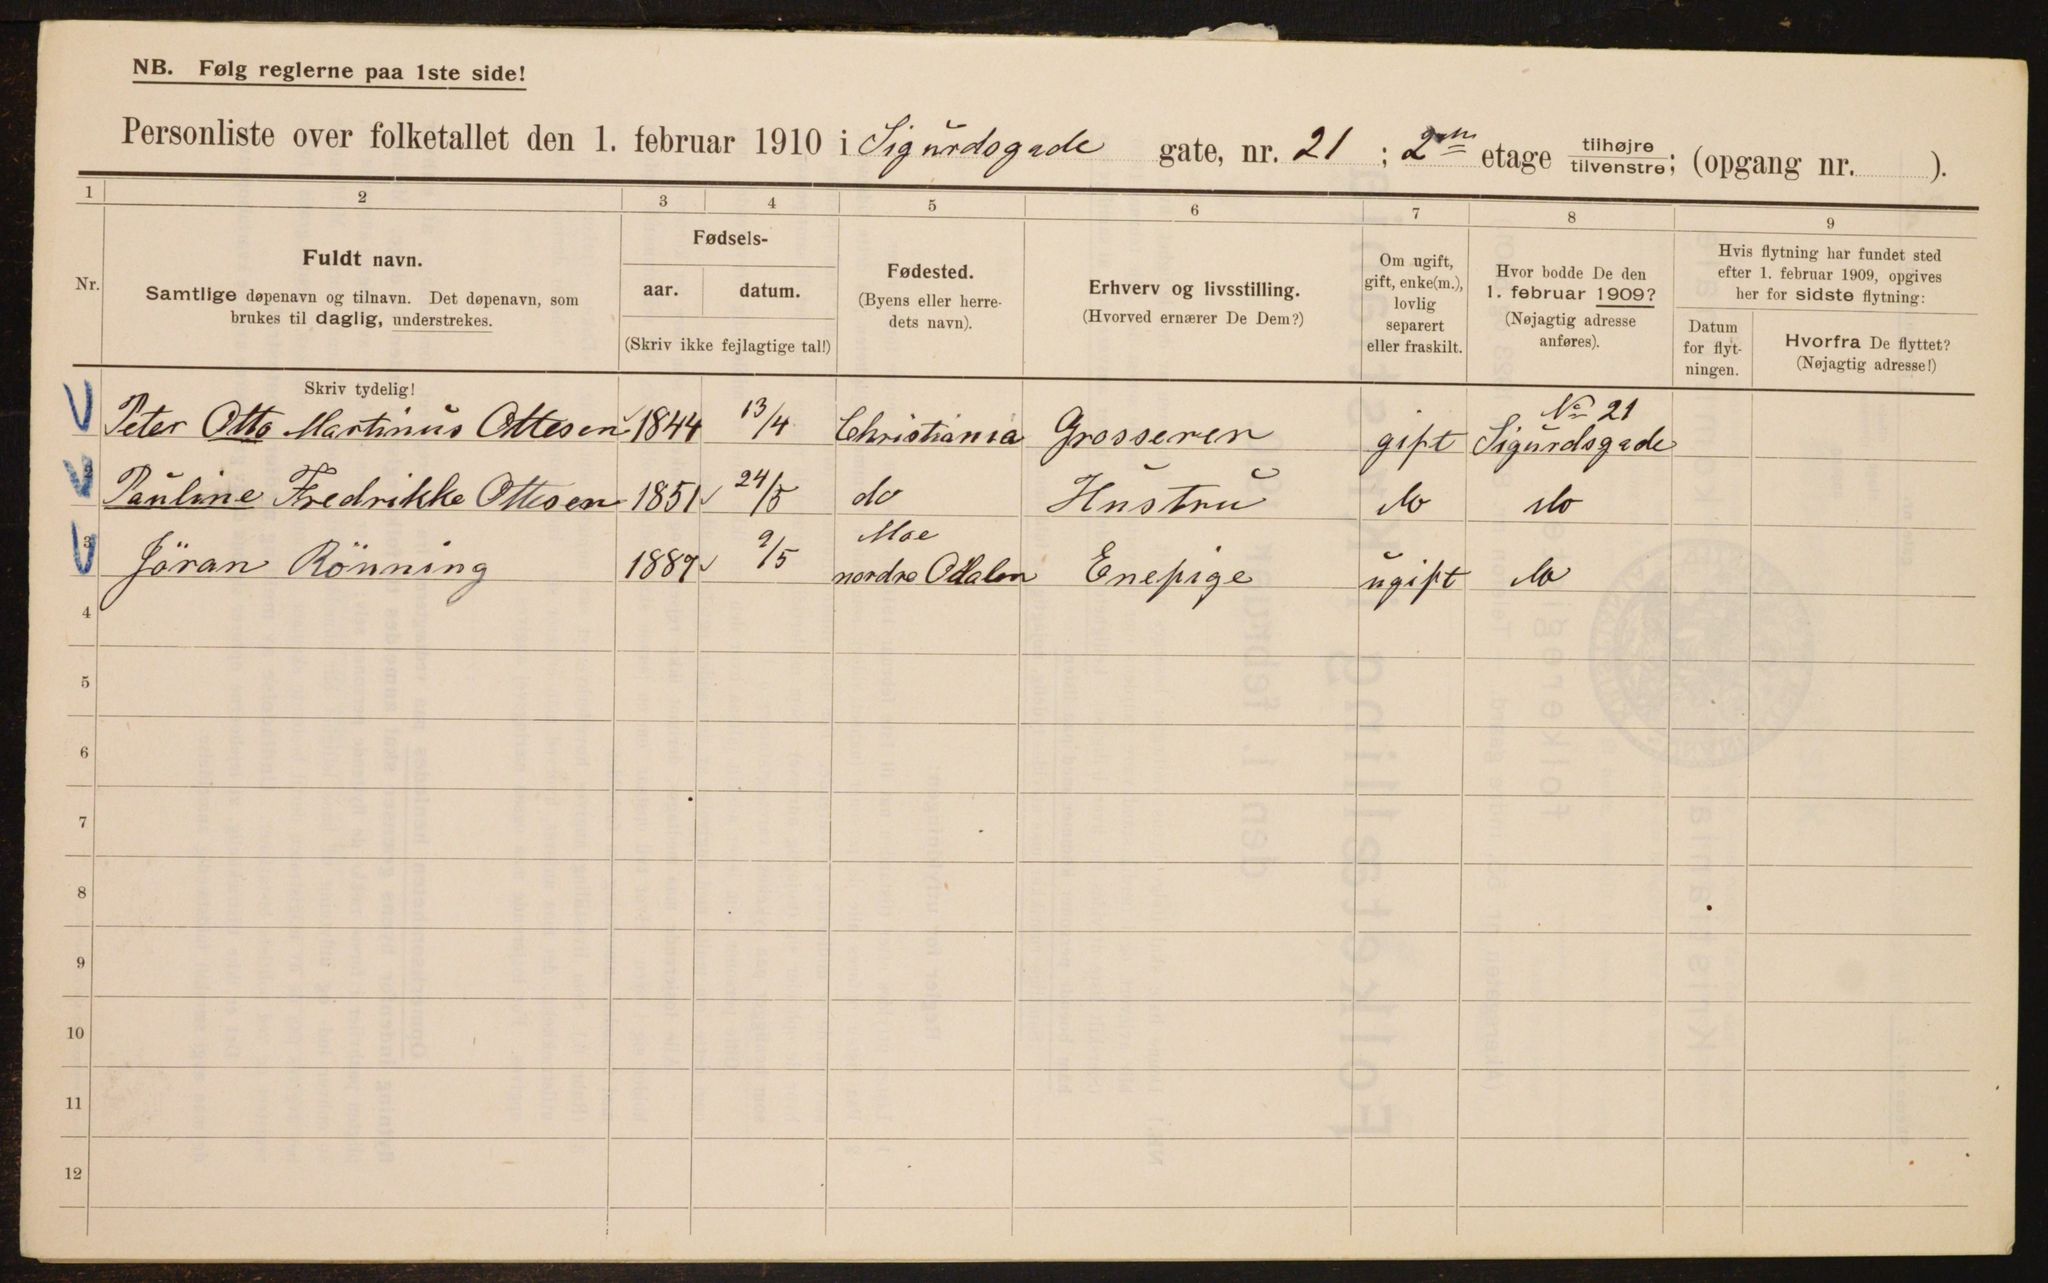 NB. Følg reglerne paa 1ste side!
Personliste over folketallet den 1. februar 1910 i Sigurdsgade gate, nr. 21 ; 2den etage tilhøjre tilvenstre; (opgang nr. ).
1 2 3 4 5 6 7 8 9
Nr.
Fuldt navn.
Samtlige døpenavn og tilnavn. Det døpenavn, som
brukes til daglig, understrekes.
Skriv tydelig!
Fødsels-
aar. datum.
(Skriv ikke fejlagtige tal!)
Fødested.
(Byens eller herre-
dets navn).
Erhverv og livsstilling.
(Hvorved ernærer De Dem?)
Om ugift,
gift, enke(m.),
lovlig
separert
eller fraskilt.
Hvor bodde De den
1. februar 1909?
(Nøjagtig adresse
anføres).
Hvis flytning har fundet sted
efter 1. februar 1909, opgives
her for sidste flytning:
Datum
for flyt-
ningen.
Hvorfra De flyttet?
(Nøjagtig adresse!)
Peter Otto Martinus Ottesen 1844 13/4 Christiania Grosserer gift No 21 Sigurdsgade
2 Pauline Fredrikke Ottesen 1851 24/5 do Hustru do do
3 Jöran Rönning 1887 9/5 Moe nordre Odalen Enepige ugift do
4
5
6
7
8
9
10
11
12